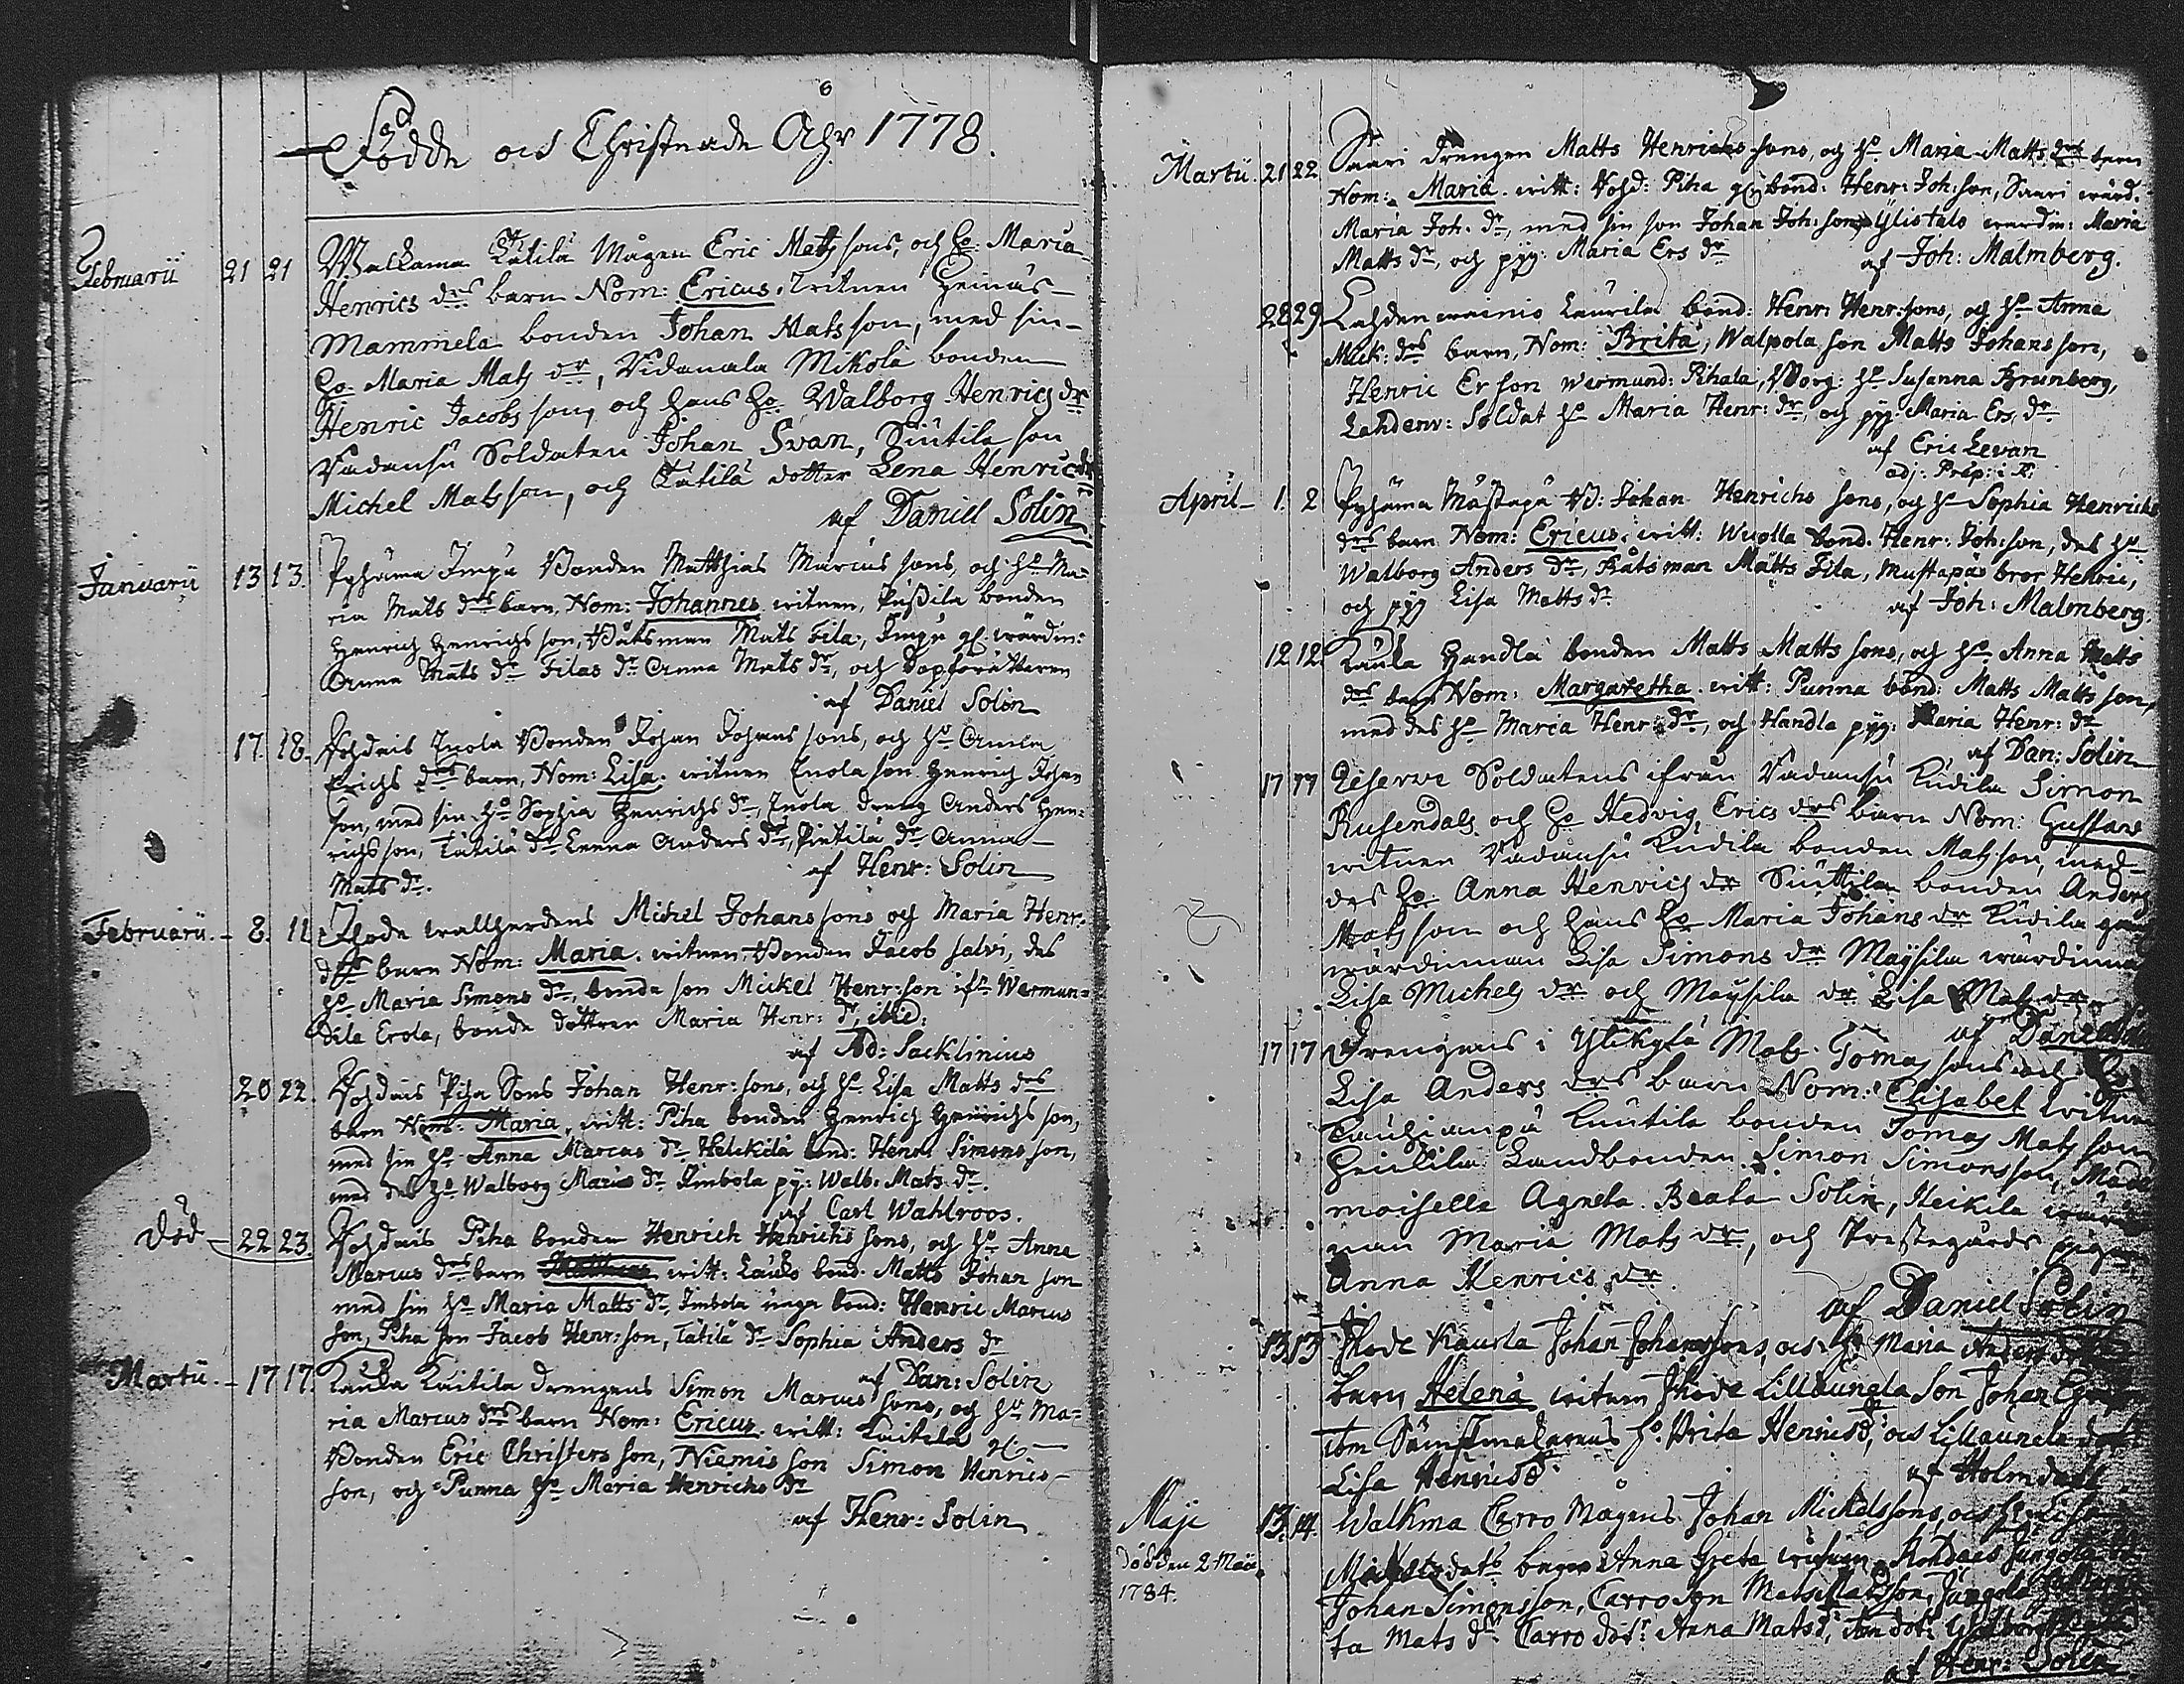 6
Födde och Christnade Åhr 1778.
Februarii 21 21 Walkama Katila Mågen Eric Mats sons, och Ho. Maria
Henrics drs barn Nom: Ericus. Witnen Heinäs-
Mammela bonden Johan Mats son, med sin
Ho. Maria Mats dr, Vidanala Mikola bonden
Henric Jacobs son, och hans Ho. Walborg Henrics dr
Vadansu Soldaten Johan Svan, Siutila son
Michel Mats son, och Katila dotter Lena Henrics dr
af Daniel Solin
Januarii 13 13. Pyhäma Impu Bonden Matthias Marcus sons, och Ho Ma-
ria Mats drs barn, Nom: Johannes witnen, bonden
Henrich Henrichs son, Båtsman Mats Fila, Impu gl. wärdin:
Anna Mats dr Filas dr Anna Mats dr, och Dopförättaren
af Daniel Solin
17. 18. Kohdais Inola Bonden Johan Johans sons, och Ho Anna
Erichs drs barn, Nom: Lisa. witnen Inola son Henrich Johan
son, med sin Ho Sophia Henrichs dr, Inola dreng Anders Hen-
richs son, Tätilä dr Leena Anders dr, Pietilä dr Anna
Mats dr. af Henr: Solin
Februarii. - 8. 11 Ihode wallherdens Michel Johans sons och Maria Henr:
drs barn Nom: Maria. witnen, Bonden Jacob salvi, des
Ho Maria Simons dr, bonde son Mickel Henr:son ifr Wermun-
dila Erola, bonde dottren Maria Henr: dr ibid:
af Ad: Sacklinius
20 22. Kohdais Piha Sons Johan Henr: sons, och Ho Lisa Matts drs
barn Nom: Maria, witt: Piha bonden Henrich Henrichs son,
med sin Ho Anna Marcus dr Helckilä bond: Henr: Simons son,
med des Ho Walborg Marcus dr Simbola py: Walb: Mats dr.
af Carl Wahlroos.
död - 22 23. Kohdais Piha bonden Henrich Henrichs sons, och Ho Anna
Marcus drs barn Matthias witt: Lauks bond: Matts Johan son
med sin Ho Maria Matts dr, Simbola unga bond: Henric Marcus
son, Piha son Jacob Henr:son, Tätilä dr Sophia Anders dr
af Dan: Solin
Martii. - 17 17. Lauka Luitila drengens Simon Marcus sons, och Ho Ma-
ria Marcus drs barn Nom: Ericus. witt: Luitila
Bonden Eric Christers son, Niemis son Simon Henrics
son, och Punna Ho Maria Henrichs dr
af Henr: Solin
Martii. 21 22. Saari drengen Matts Henrichs sons, och Ho Maria Matts drs barn
Nom: Maria. witt: Kohd: Piha gl. bond: Henr: Joh:son, Saari wärd:
Maria Joh. dr, med sin son Johan Joh: son, Ylistalo wärdin: Maria
Matts dr, och pyg: Maria Ers dr
af Joh: Malmberg.
28 29 Lahdenwainio Laurila bond: Henr: Henr:sons, och Ho Anna
Mick: drs barn, Nom: Brita, Walpola son Matts Johans son,
Henric Er son Wermund: Pihala, Borg: Ho Susanna Brunberg,
Lahdenw: Soldat Ho Maria Henr: dr, och pyg Maria Ers dr
af Eric Levan
adj: Præp: i K:
April - 1. 2 Pyhäma Mustapä B: Johan Henrichs sons, och Ho Sophia Henrichs
drs barn Nom: Ericus. witt: Wuolla bond. Henr: Joh:son, des Ho
Walborg Anders dr, Båtsman Matts Fila, Mustapäs bror Henric,
och pyg Lisa Matts dr af Joh: Malmberg.
12 12. Lauka Handla bonden Matts Matts sons, och Ho Anna Matts
drs barn Nom: Margaretha. witt: Punna bond: Matts Matts son,
med des Ho Maria Henr: dr, och Handla pyg: Maria Henr: dr
af Dan: Solin
17 17 Reserve Soldatens ifrån Vadansu Ludila Simon
Rusendals och Ho Hedvig Erics drs barn Nom: Gustavs
witnen Vadansu Ludila bonden Mats son, med
des Ho. Anna Henrics dr Siuttila bonden Anders
Mats son och hans Ho Maria Johans dr Ludila
wärdinnan Lisa Simons dr Maysila wärdinnan
Lisa Michels dr och Maysila dr Lisa Mats dr
af Daniel
17 17 Drengens i Ylikylä Mats Tomas sons och Ho
Lisa Anders drs barn Nom: Elisabet witnen
Luutila bonden Tomas Mats son
Heikila Landbonden Simon Simonsson, Made-
moiselle Agneta Beata Solin, Heikila wärdin-
nan Maria Mats dr, och Prestegårds pigan
Anna Henrics dr.
af Daniel Solin
13 13 Ihode Kaurla Johan Johanssons, och Ho Maria Anders
barn Helena witnen Ihode Lillaunela Son Johan
Ho. Brita Henricsd, och Lillaunela
Lisa Henricsd
af Holmdahl
Maji 13. 14. Walkma Carro Mågens Johan Michelssons, och Ho Lisa
död den 2 Maii
1784.
barn Anna Greta witnen Kohdais Jungola
Johan Simonsson, Carro son Mats Matsson, Jungola
ta Mats dr Carro dotr Anna Matsd,
af Henr: Solin